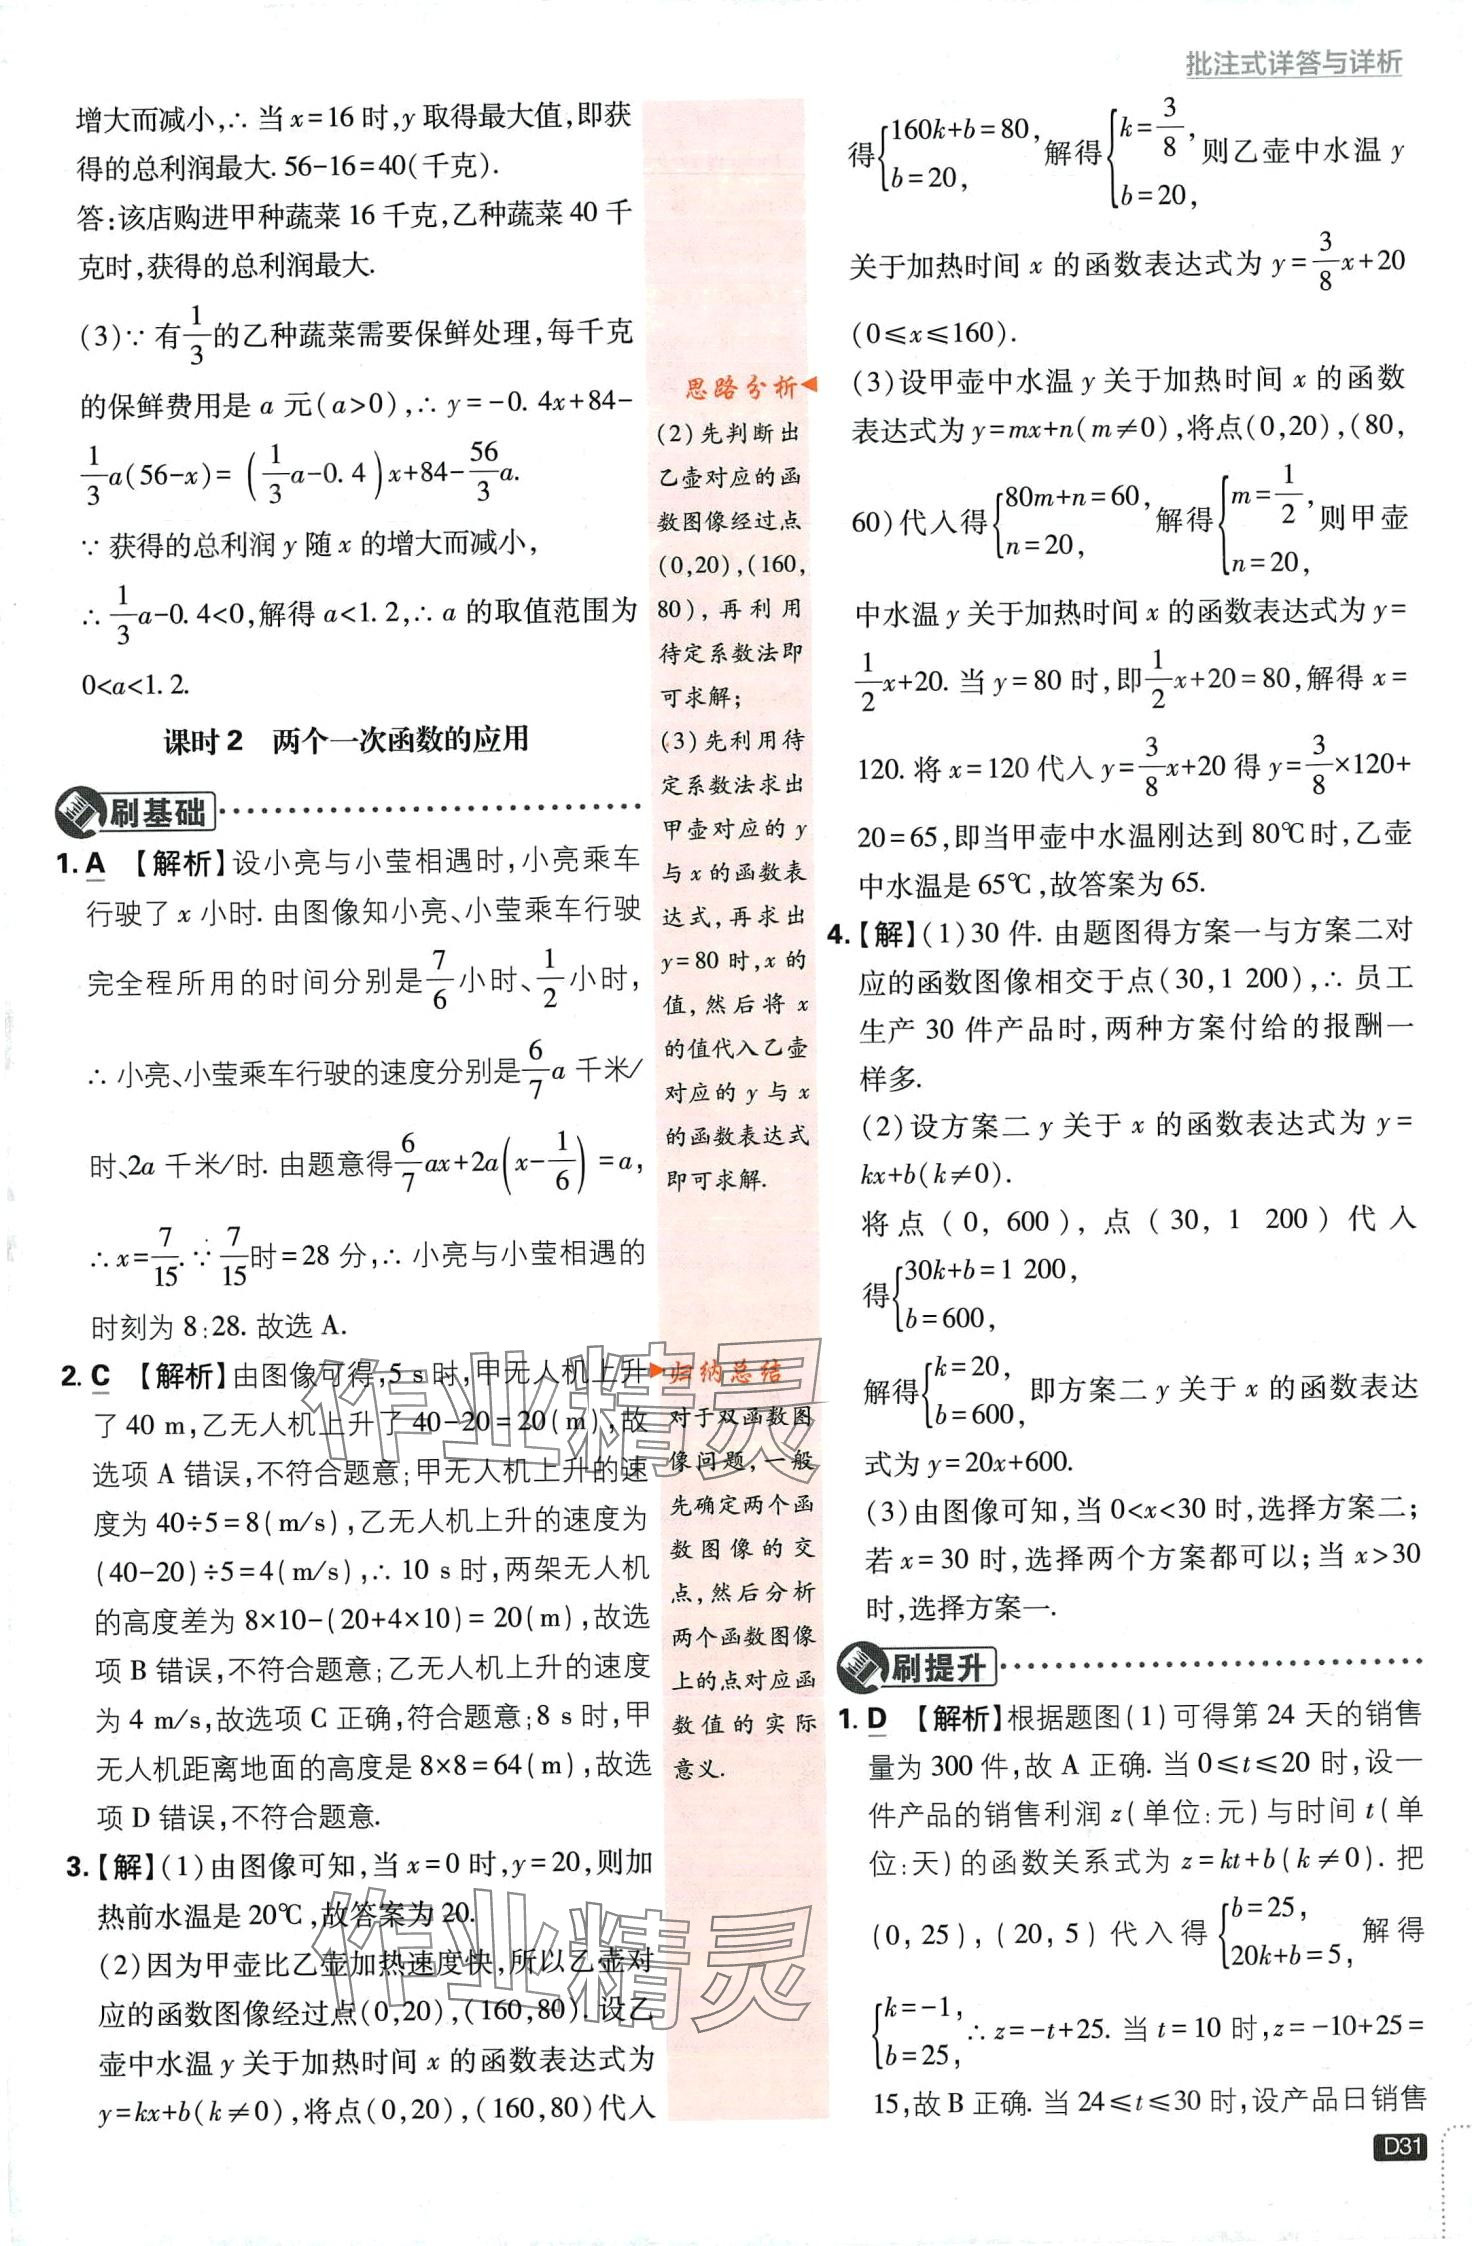 批注式详答与详析
增大而减小,∴ 当 x=16 时,y 取得最大值,即获
得的总利润最大. 56-16=40(千克).
答:该店购进甲种蔬菜 16 千克,乙种蔬菜 40 千
克时,获得的总利润最大.
(3)∵ 有1/3的乙种蔬菜需要保鲜处理,每千克
的保鲜费用是 a 元(a>0),∴ y=-0.4x+84-
1/3a(56-x)=(1/3a-0.4)x+84-56/3a.
∵ 获得的总利润 y 随 x 的增大而减小,
∴ 1/3a-0.4<0,解得 a<1.2,∴ a 的取值范围为
0<a<1.2.
课时2 两个一次函数的应用
刷基础
1. A 【解析】设小亮与小莹相遇时,小亮乘车
行驶了 x 小时. 由图像知小亮、小莹乘车行驶
完全程所用的时间分别是7/6小时、1/2小时,
∴ 小亮、小莹乘车行驶的速度分别是6/7a 千米/
时、2a 千米/时. 由题意得6/7ax+2a(x-1/6)=a,
∴ x=7/15. ∵ 7/15时=28 分,∴ 小亮与小莹相遇的
时刻为 8:28. 故选 A.
2. C 【解析】由图像可得,5 s 时,甲无人机上升
了 40 m,乙无人机上升了 40-20=20(m),故
选项 A 错误,不符合题意;甲无人机上升的速
度为 40÷5=8(m/s),乙无人机上升的速度为
(40-20)÷5=4(m/s),∴ 10 s 时,两架无人机
的高度差为 8×10-(20+4×10)=20(m),故选
项 B 错误,不符合题意;乙无人机上升的速度
为 4 m/s,故选项 C 正确,符合题意;8 s 时,甲
无人机距离地面的高度是 8×8=64(m),故选
项 D 错误,不符合题意.
3.【解】(1)由图像可知,当 x=0 时,y=20,则加
热前水温是 20℃,故答案为 20.
(2)因为甲壶比乙壶加热速度快,所以乙壶对
应的函数图像经过点(0,20),(160,80). 设乙
壶中水温 y 关于加热时间 x 的函数表达式为
y=kx+b(k≠0),将点(0,20),(160,80)代入
思路分析
(2)先判断出
乙壶对应的函
数图像经过点
(0,20),(160,
80),再利用
待定系数法即
可求解;
(3)先利用待
定系数法求出
甲壶对应的 y
与 x 的函数表
达式,再求出
y=80 时,x 的
值,然后将 x
的值代入乙壶
对应的 y 与 x
的函数表达式
即可求解.
归纳总结
对于双函数图
像问题,一般
先确定两个函
数图像的交
点,然后分析
两个函数图像
上的点对应函
数值的实际
意义.
得{160k+b=80, b=20, 解得{k=3/8, b=20, 则乙壶中水温 y
关于加热时间 x 的函数表达式为 y=3/8x+20
(0≤x≤160).
(3)设甲壶中水温 y 关于加热时间 x 的函数
表达式为 y=mx+n(m≠0),将点(0,20),(80,
60)代入得{80m+n=60, n=20, 解得{m=1/2, n=20, 则甲壶
中水温 y 关于加热时间 x 的函数表达式为 y=
1/2x+20. 当 y=80 时,即1/2x+20=80,解得 x=
120. 将 x=120 代入 y=3/8x+20 得 y=3/8×120+
20=65,即当甲壶中水温刚达到 80℃时,乙壶
中水温是 65℃,故答案为 65.
4.【解】(1)30 件. 由题图得方案一与方案二对
应的函数图像相交于点(30,1 200),∴ 员工
生产 30 件产品时,两种方案付给的报酬一
样多.
(2)设方案二 y 关于 x 的函数表达式为 y=
kx+b(k≠0).
将点(0,600),点(30,1 200)代入
得{30k+b=1 200, b=600,
解得{k=20, b=600, 即方案二 y 关于 x 的函数表达
式为 y=20x+600.
(3)由图像可知,当 0<x<30 时,选择方案二;
若 x=30 时,选择两个方案都可以;当 x>30
时,选择方案一.
刷提升
1. D 【解析】根据题图(1)可得第 24 天的销售
量为 300 件,故 A 正确. 当 0≤t≤20 时,设一
件产品的销售利润 z(单位:元)与时间 t(单
位:天)的函数关系式为 z=kt+b(k≠0). 把
(0,25),(20,5)代入得{b=25, 20k+b=5, 解得
{k=-1, b=25, ∴ z=-t+25. 当 t=10 时,z=-10+25=
15,故 B 正确. 当 24≤t≤30 时,设产品日销售
D31
作业精灵
作业精灵